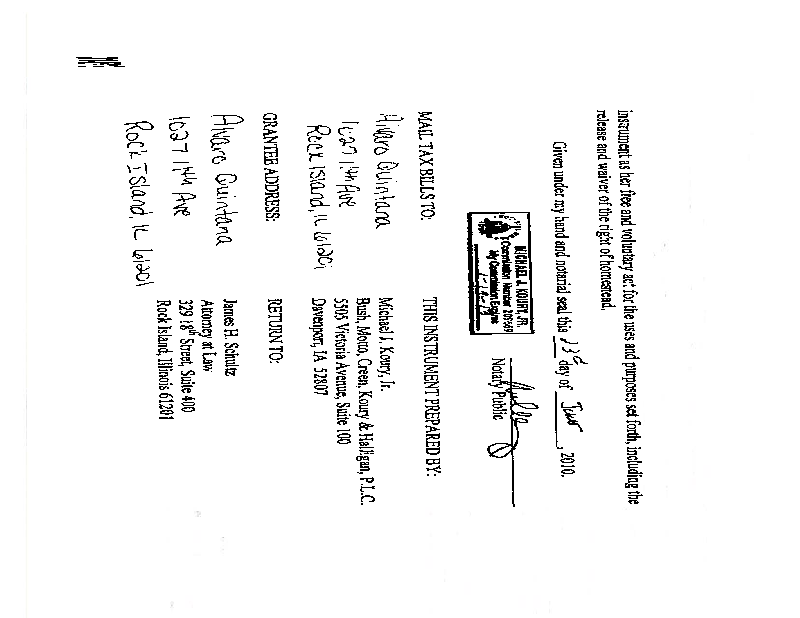 instrument as her free and voluntary act for the uses and purposes set forth, including the
release and waiver of the right of homestead.
Given under my hand and notarial seal this 13th day of , 2010.
MICHAEL J. KOURY, JR.
Commission Number
My Commission Expires
Notary Public
MAIL TAX BILLS TO:
Alvaro Quintana
1027 17th Ave
Rock Island, IL 61201
GRANTEE ADDRESS:
Alvaro Quintana
1027 17th Ave
Rock Island, IL 61201
THIS INSTRUMENT PREPARED BY:
Michael J. Koury, Jr.
Bush, Motto, Creen, Koury & Halligan, P.L.C.
5505 Victoria Avenue, Suite 100
Davenport, IA 52807
RETURN TO:
James H. Schultz
Attorney at Law
329 18th Street, Suite 400
Rock Island, Illinois 61201